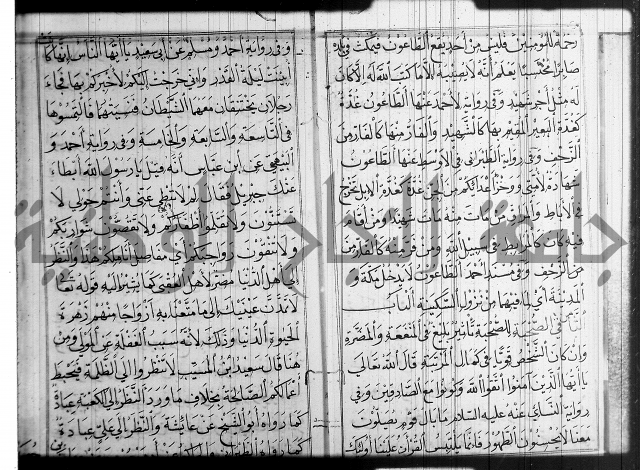 رحمة للمؤمنين فليس من احد يقع الطاعون فيمكث في بلده
صابرا محتسبا يعلم أنه لا يصيبه الا ما كتب الله له الا كان
له مثل اجر شهيد وفي رواية لاحمد عنها الطاعون غدة
كغدة البعير المقيم بها كالشهيد والفار منها كالفار من
الزحف وفي رواية الطبراني في الاوسط عنها الطاعون
شهادة لامتي ووخز اعدائكم من الجن غدة كغدة الابل تخرج
في الآباط والمراق من مات منه مات شهيد ومن اقام
فيه كان كالمرابط في سبيل الله ومن فر منه كالفار من
من الزحف وفي مسند احمد الطاعون لا يدخل مكة و
المدينة أي لما فيهما من نزول السكينة الباب
للصحبة تأثير بليغ في المنفعة والمضرة
وان كان الشخص قويا في كمال المرتبة قال الله تعالى
يا ايها الذين امنوا اتقوا الله وكونوا مع الصادقين وفي
رواية النسائي عنه عليه السلام ما بال قوم يصلون
معنا لا يحسنون الطهور فانما يلبس القرآن علينا اولئك
وفي رواية احمد ومسلم عن أبي سعيد يا أيها الناس إنها كانت
أبينت ليلة القدر واني خرجت إليكم لأخبركم بها فجاء
رجلان يختصمان معهما الشيطان فنسيتها فالتمسوها
في التاسعة والسابعة والخامسة وفي رواية احمد و
البيهقي عن ابن عباس أنه قيل يا رسول الله أبطاء
عنك جبريل فقال لم لا يبطئ عني وأنتم حولي لا
تستنون ولا تقلموا اظفاركم ولا تقصون شواربكم
ولا تنقون رواجبكم أي مفاصل أناملكم هذا والنظر
الى أهل الدنيا مضر لأهل العقبى كما يشير اليه قوله تعالى
لا تمدن عينيك الى ما متعنا به أزواجا منهم زهرة
الحيوة الدنيا وذلك لأنه سبب الغفلة عن المولى ومن
هنا قال سعيد بن المسيب لا تنظروا الى الظلمة فيحبط
أعمالكم الصالحة بخلاف ما ورد النظر الى الكعبة عبادة
كما رواه أبو الشيخ عن عائشة والنظر الى علي عبادة
جامعة النجاح الوطنية